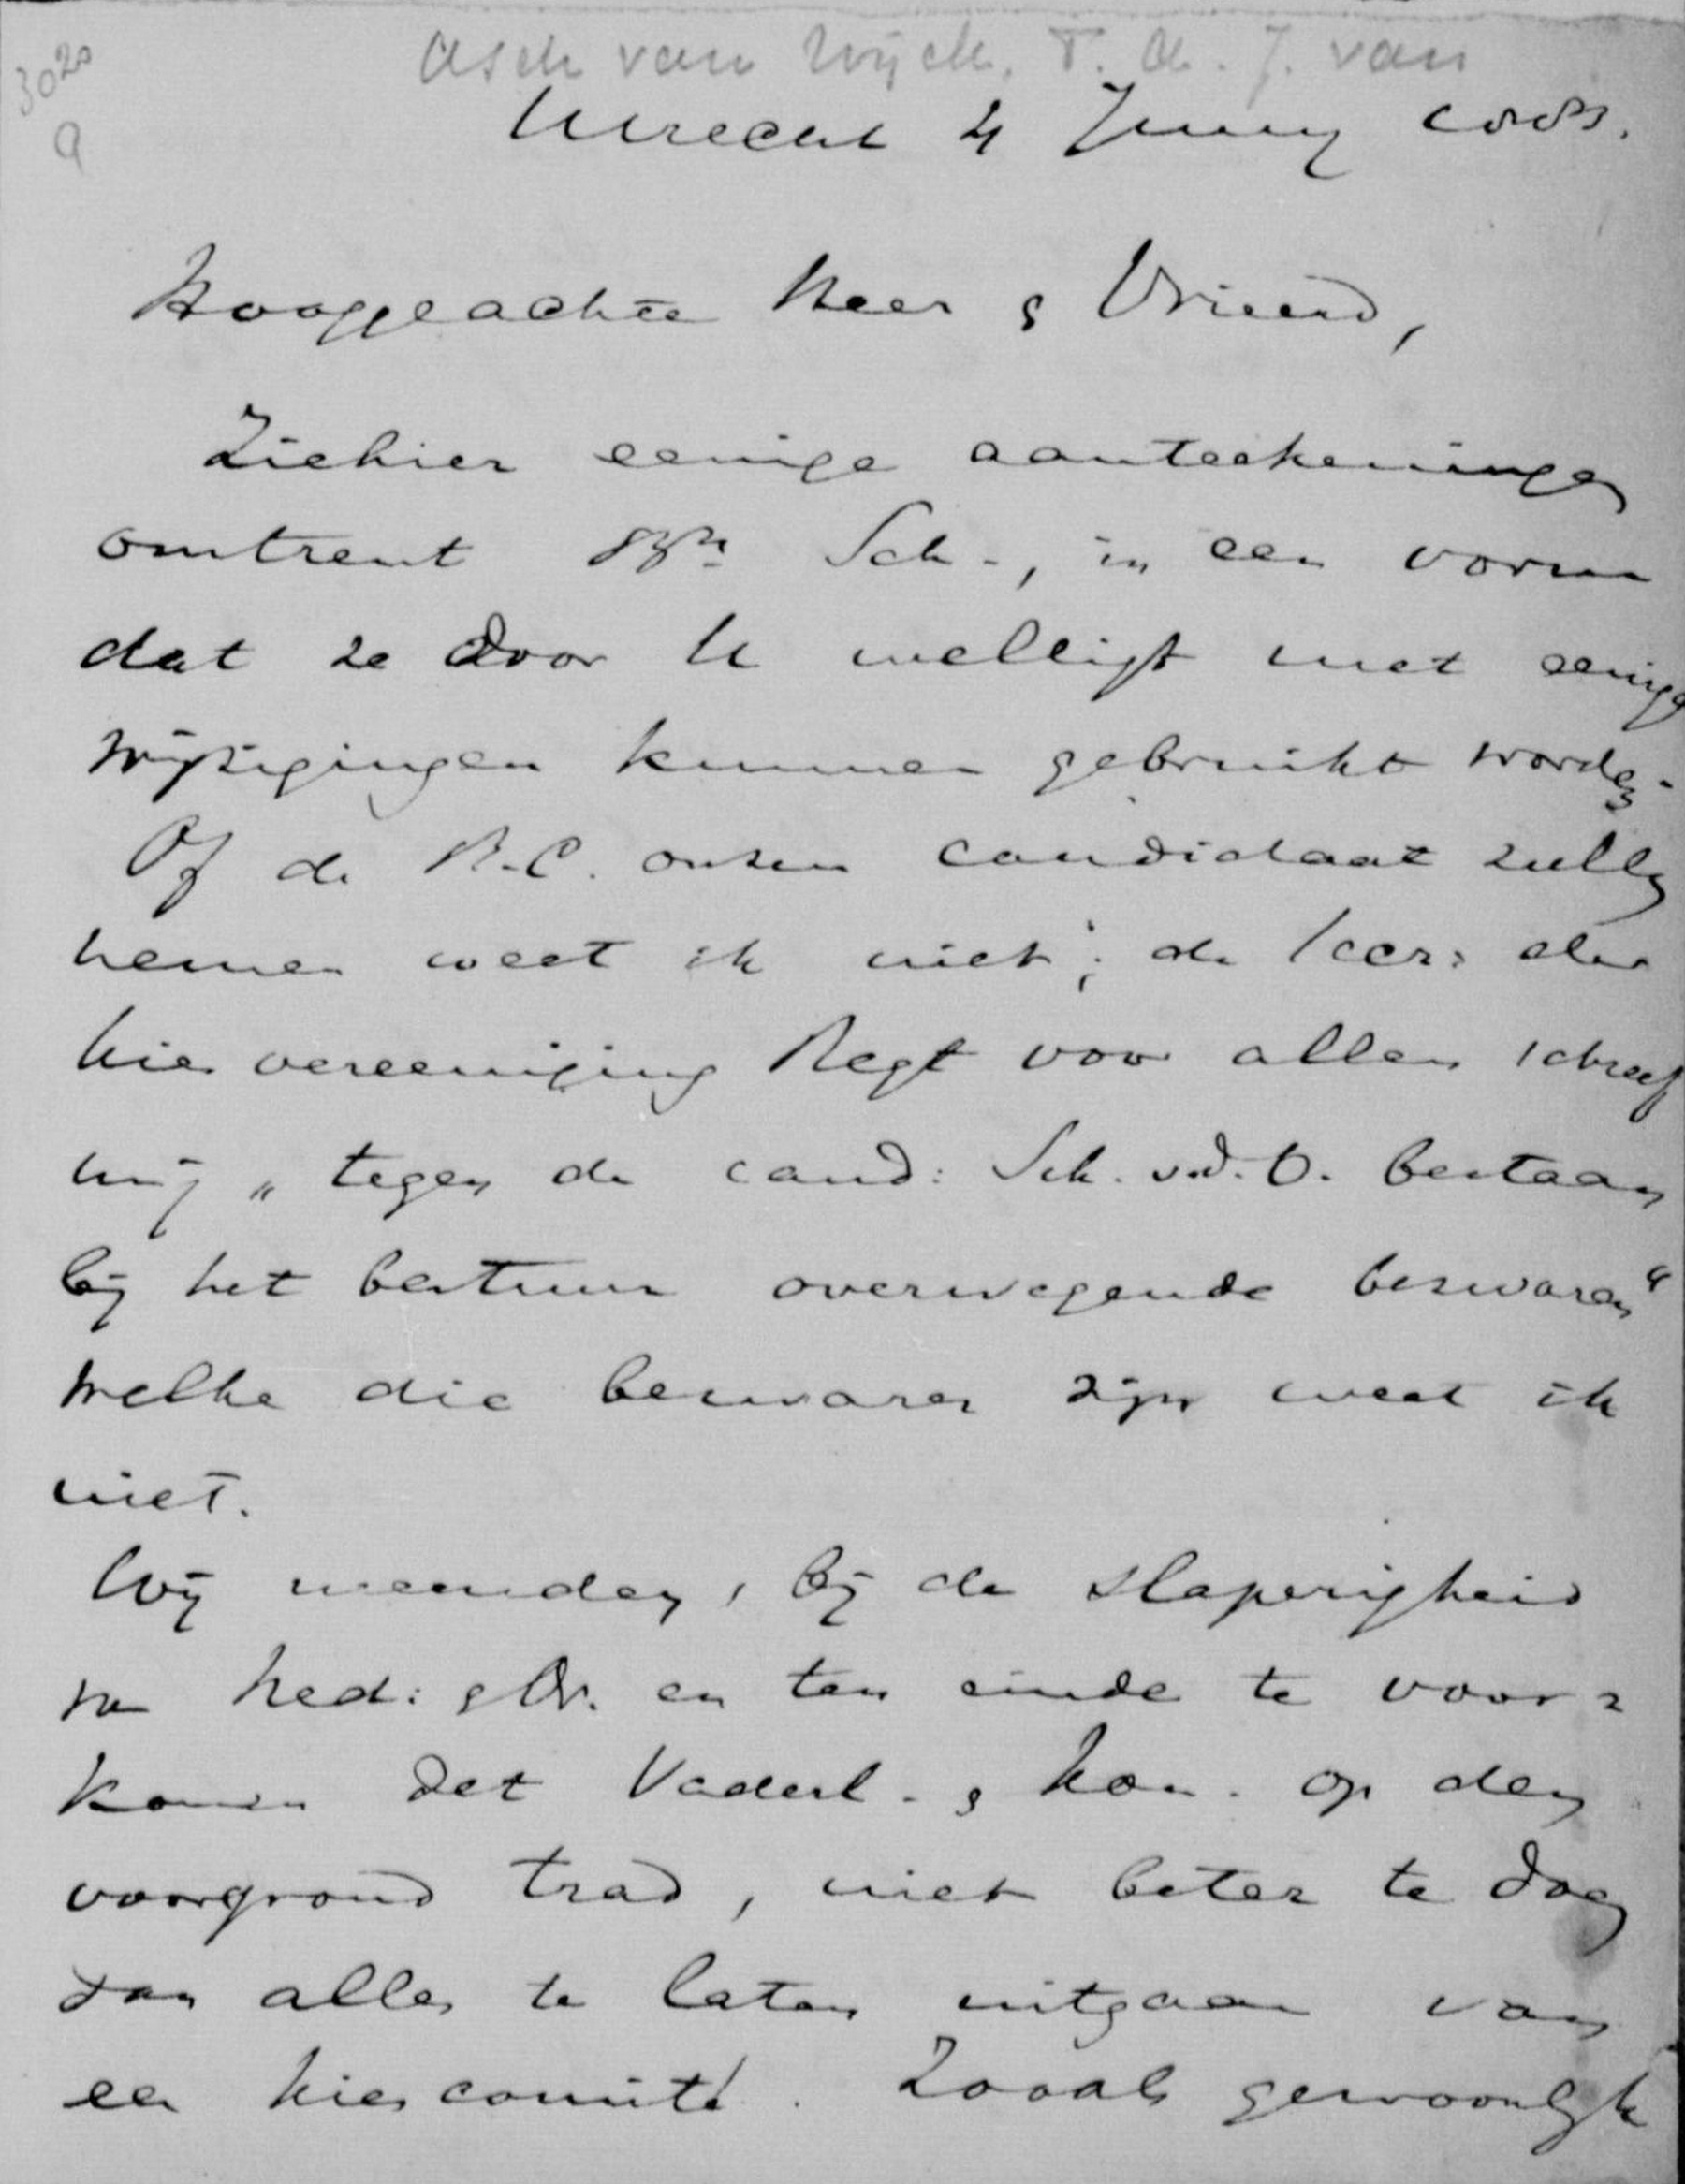 3020
9
Asch van Wijck, T. A. J. van
Utrecht 4 Juny
Hooggeachte Heer & Vriend,
Ziehier eenige aanteekeningen
omtrent Sch., in een vorm
dat ze door U welligt met eenige
wijzigingen kunnen gebruikt worden.
Of de R.C. onzen candidaat zullen
nemen weet ik niet; de der
kiesvereeniging Regt voor allen schreef
mij „tegen de cand: Sch. v.d. O. bestaan
bij het bestuur overwegende bezwaren“
welke die bezwaren zijn weet ik
niet.
Wij meenden, bij de slaperigheid
v. Ned: & Or. en ten einde te voor-
komen dat Vaderl. & Kon. op den
voorgrond trad, niet beter te doen
dan alles te laten uitgaan van
een kiescomité. Zooals gewoonlijk